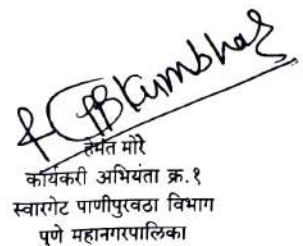 हेमंत मोरे
कार्यकरी अभियंता क्र.१
स्वारगेट पाणीपुरवठा विभाग
पुणे महानगरपालिका